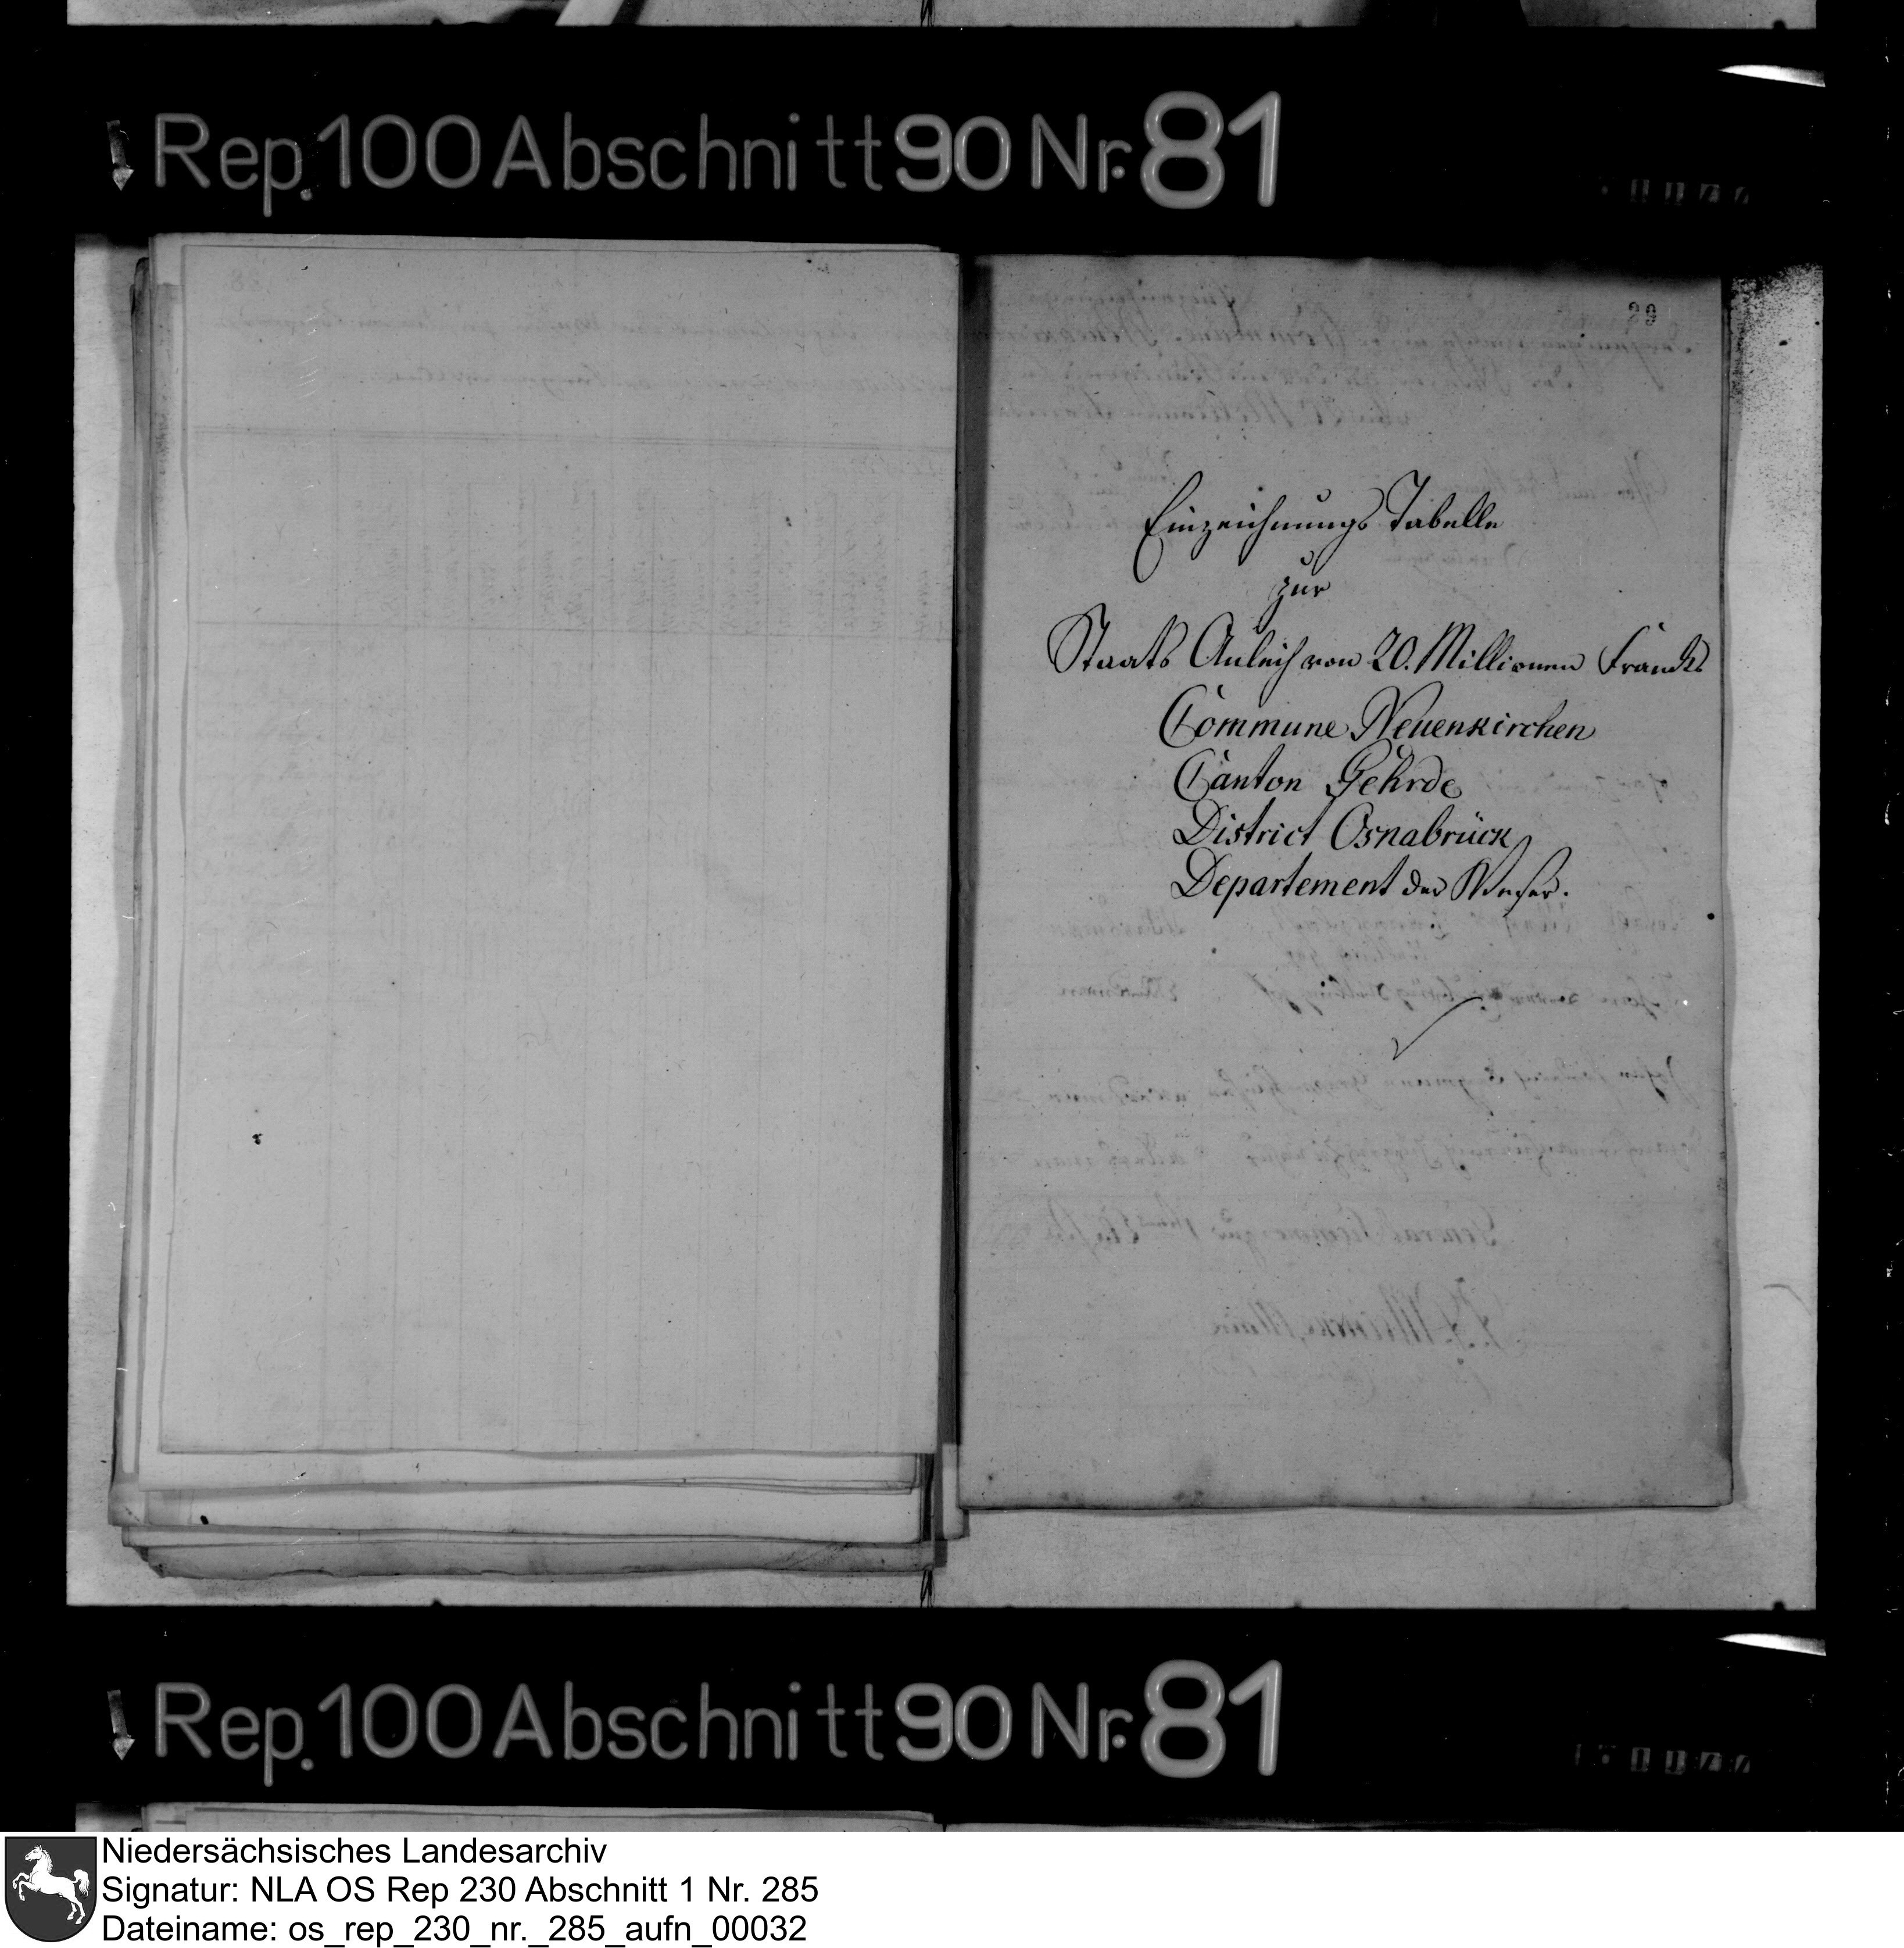 Rep. 100 Abschnitt 90 Nr. 81
29
Einzeichnungs Tabelle
zur
Staats Anleih von 20. Millionen Francks
Commune Neuenkirchen
Canton Gehrde
District Osnabrück
Departement der Weser.
Rep. 100 Abschnitt 90 Nr. 81
Niedersächsisches Landesarchiv
Signatur: NLA OS Rep 230 Abschnitt 1 Nr. 285
Dateiname: os_rep_230_nr._285_aufn_00032